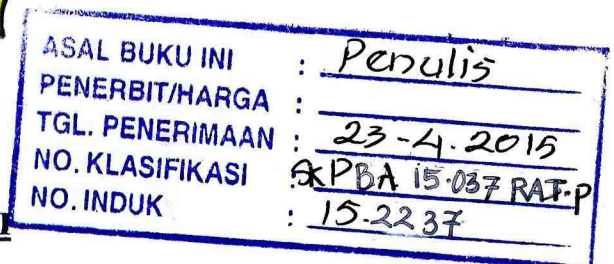 ASAL BUKU INI : Penulis
PENERBIT/HARGA :
TGL. PENERIMAAN : 23-4.2015
NO. KLASIFIKASI : SKPBA 15.037 RAT-P
NO. INDUK : 15.2237